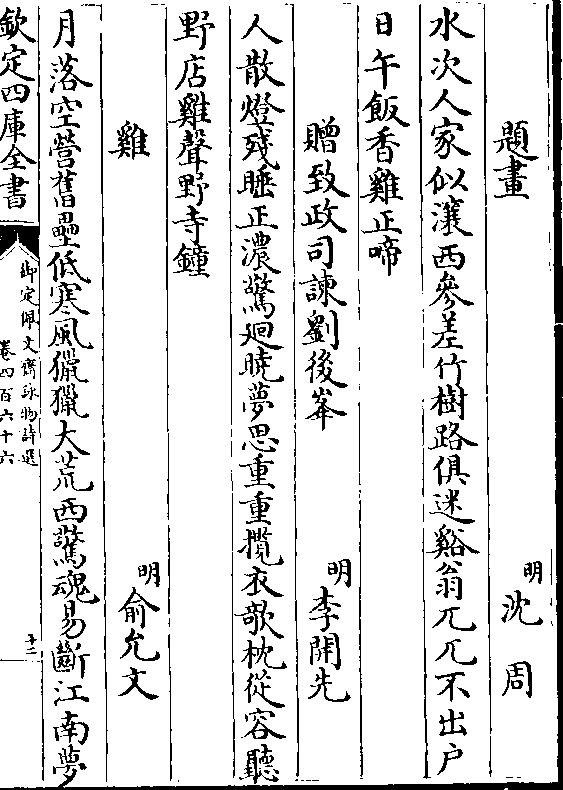 題畫　明沈周
水次人家似瀼西參差竹樹路俱迷谿翁兀兀不出户
日午飯香雞正啼
贈致政司諫劉後峯　明李開先
人散燈殘睡正濃驚廻曉夢思重重攬衣欹枕從容聽
野店雞聲野寺鐘
雞　明俞允文
月落空營舊壘低寒風獵獵大荒西驚魂易斷江南夢
欽定四庫全書
御定佩文齋詠物詩選
卷四百六十六
十二